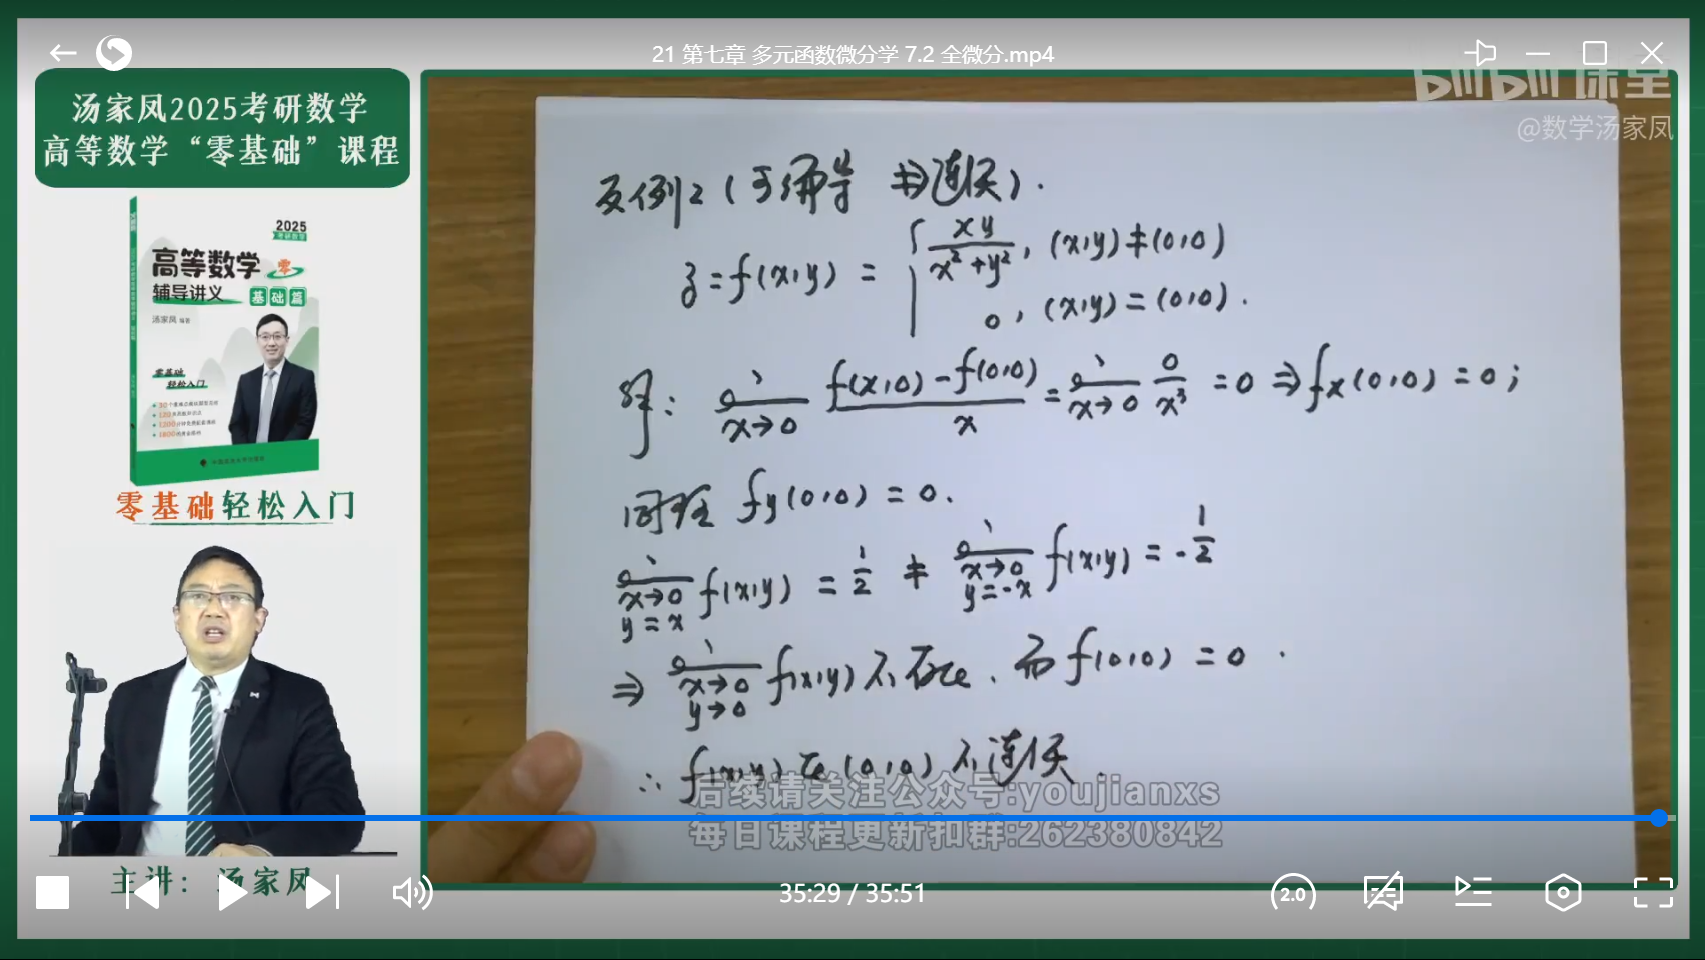 21 第七章 多元函数微分学 7.2 全微分.mp4
汤家凤2025考研数学
高等数学“零基础”课程
2025
高等数学 零
辅导讲义 基础篇
汤家凤 编著
零基础
轻松入门
零基础轻松入门
主讲：汤家凤
bilibili 课堂
@数学汤家凤
反例2 (可偏导 ⇏ 连续).
z = f(x,y) = { xy/(x²+y²), (x,y)≠(0,0)
0, (x,y)=(0,0).
解: lim x→0 (f(x,0)-f(0,0))/x = lim x→0 0/x³ = 0 ⇒ fx(0,0) = 0;
同理 fy(0,0) = 0.
lim x→0 y=x f(x,y) = 1/2 ≠ lim x→0 y=-x f(x,y) = -1/2
⇒ lim x→0 y→0 f(x,y) 不存在. 而 f(0,0) = 0.
∴ f(x,y) 在 (0,0) 不连续.
后续请关注公众号:youjianxs
每日课程更新扣群:262380842
35:29 / 35:51
2.0